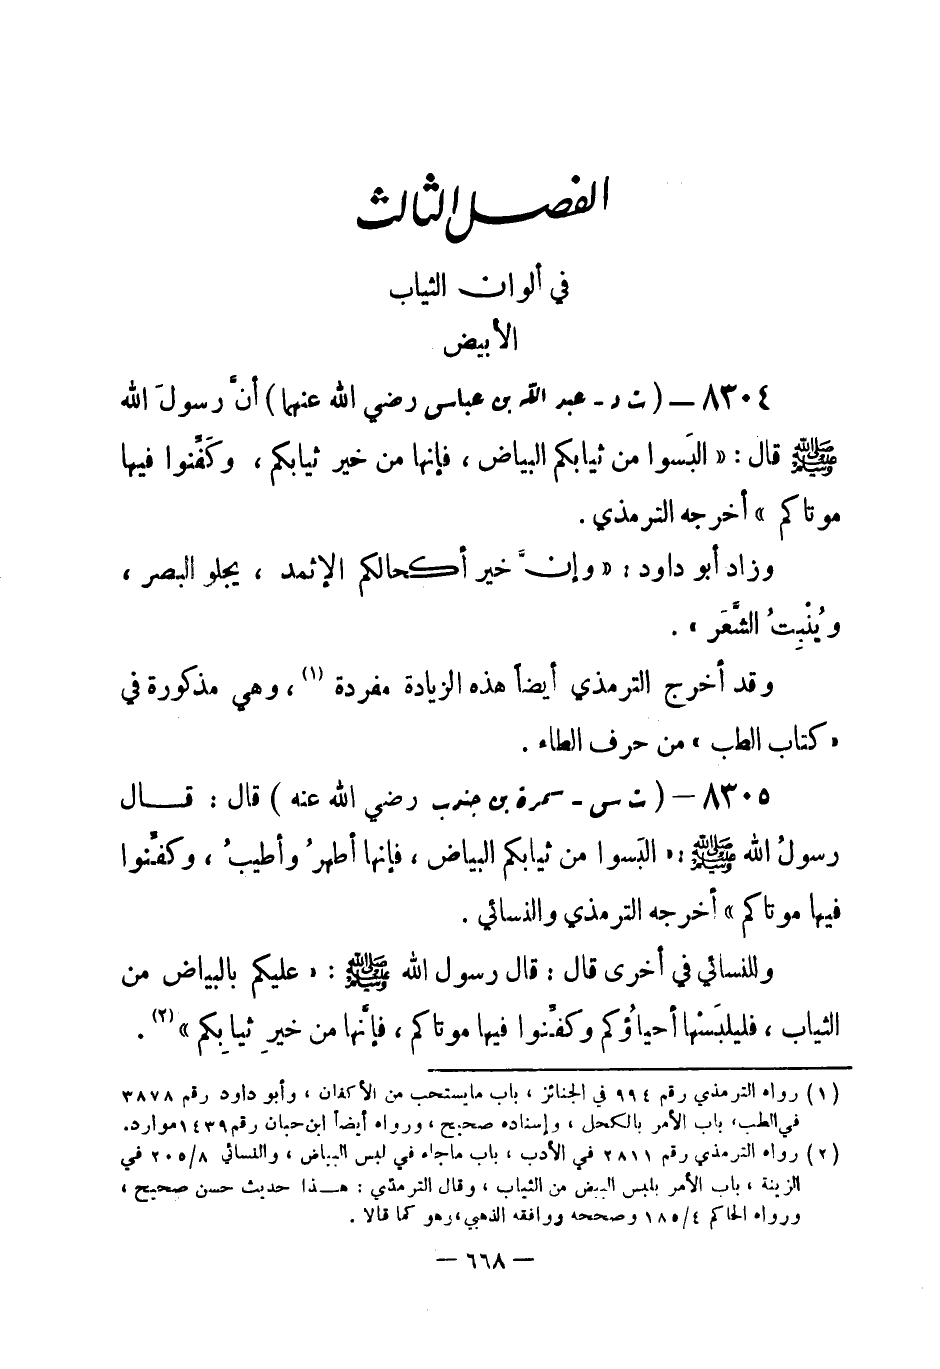 الفصل الثالث
في ألوان الثياب
الأبيض
٨٣٠٤ – ( ت د - عبد الله بن عباس رضي الله عنهما ) أنَّ رسولَ الله
ﷺ قال : « البَسوا من ثيابكم البياض ، فإنها من خير ثيابكم ، وكَفِّنوا فيها
موتاكم » أخرجه الترمذي .
وزاد أبو داود : « وإنَّ خير أكحالكم الإثمد ، يجلو البصر ،
ويُنْبِتُ الشَّعَر » .
وقد أخرج الترمذي أيضاً هذه الزيادة مفردة (١) ، وهي مذكورة في
« كتاب الطب » من حرف الطاء .
٨٣٠٥ – ( ت س - سمرة بن جندب رضي الله عنه ) قال : قال
رسولُ الله ﷺ : « البَسوا من ثيابكم البياض ، فإنها أطهرُ وأطيبُ ، وكفِّنوا
فيها موتاكم » أخرجه الترمذي والنسائي .
وللنسائي في أخرى قال : قال رسول الله ﷺ : « عليكم بالبياض من
الثياب ، فليلبَسْها أحياؤكم وكفِّنوا فيها موتاكم ، فإنَّها من خيرِ ثيابِكم » (٢) .
(١) رواه الترمذي رقم ٩٩٤ في الجنائز ، باب مايستحب من الأكفان ، وأبو داود رقم ٣٨٧٨
في الطب، باب الأمر بالكحل ، وإسناده صحيح ، ورواه أيضاً ابن حبان رقم ١٤٣٩ موارد.
(٢) رواه الترمذي رقم ٢٨١١ في الأدب ، باب ماجاء في لبس البياض ، والنسائي ٢٠٥/٨ في
الزينة ، باب الأمر بلبس البيض من الثياب ، وقال الترمذي : هذا حديث حسن صحيح ،
ورواه الحاكم ١٨٥/٤ وصححه ووافقه الذهبي، وهو كما قالا .
– ٦٦٨ –